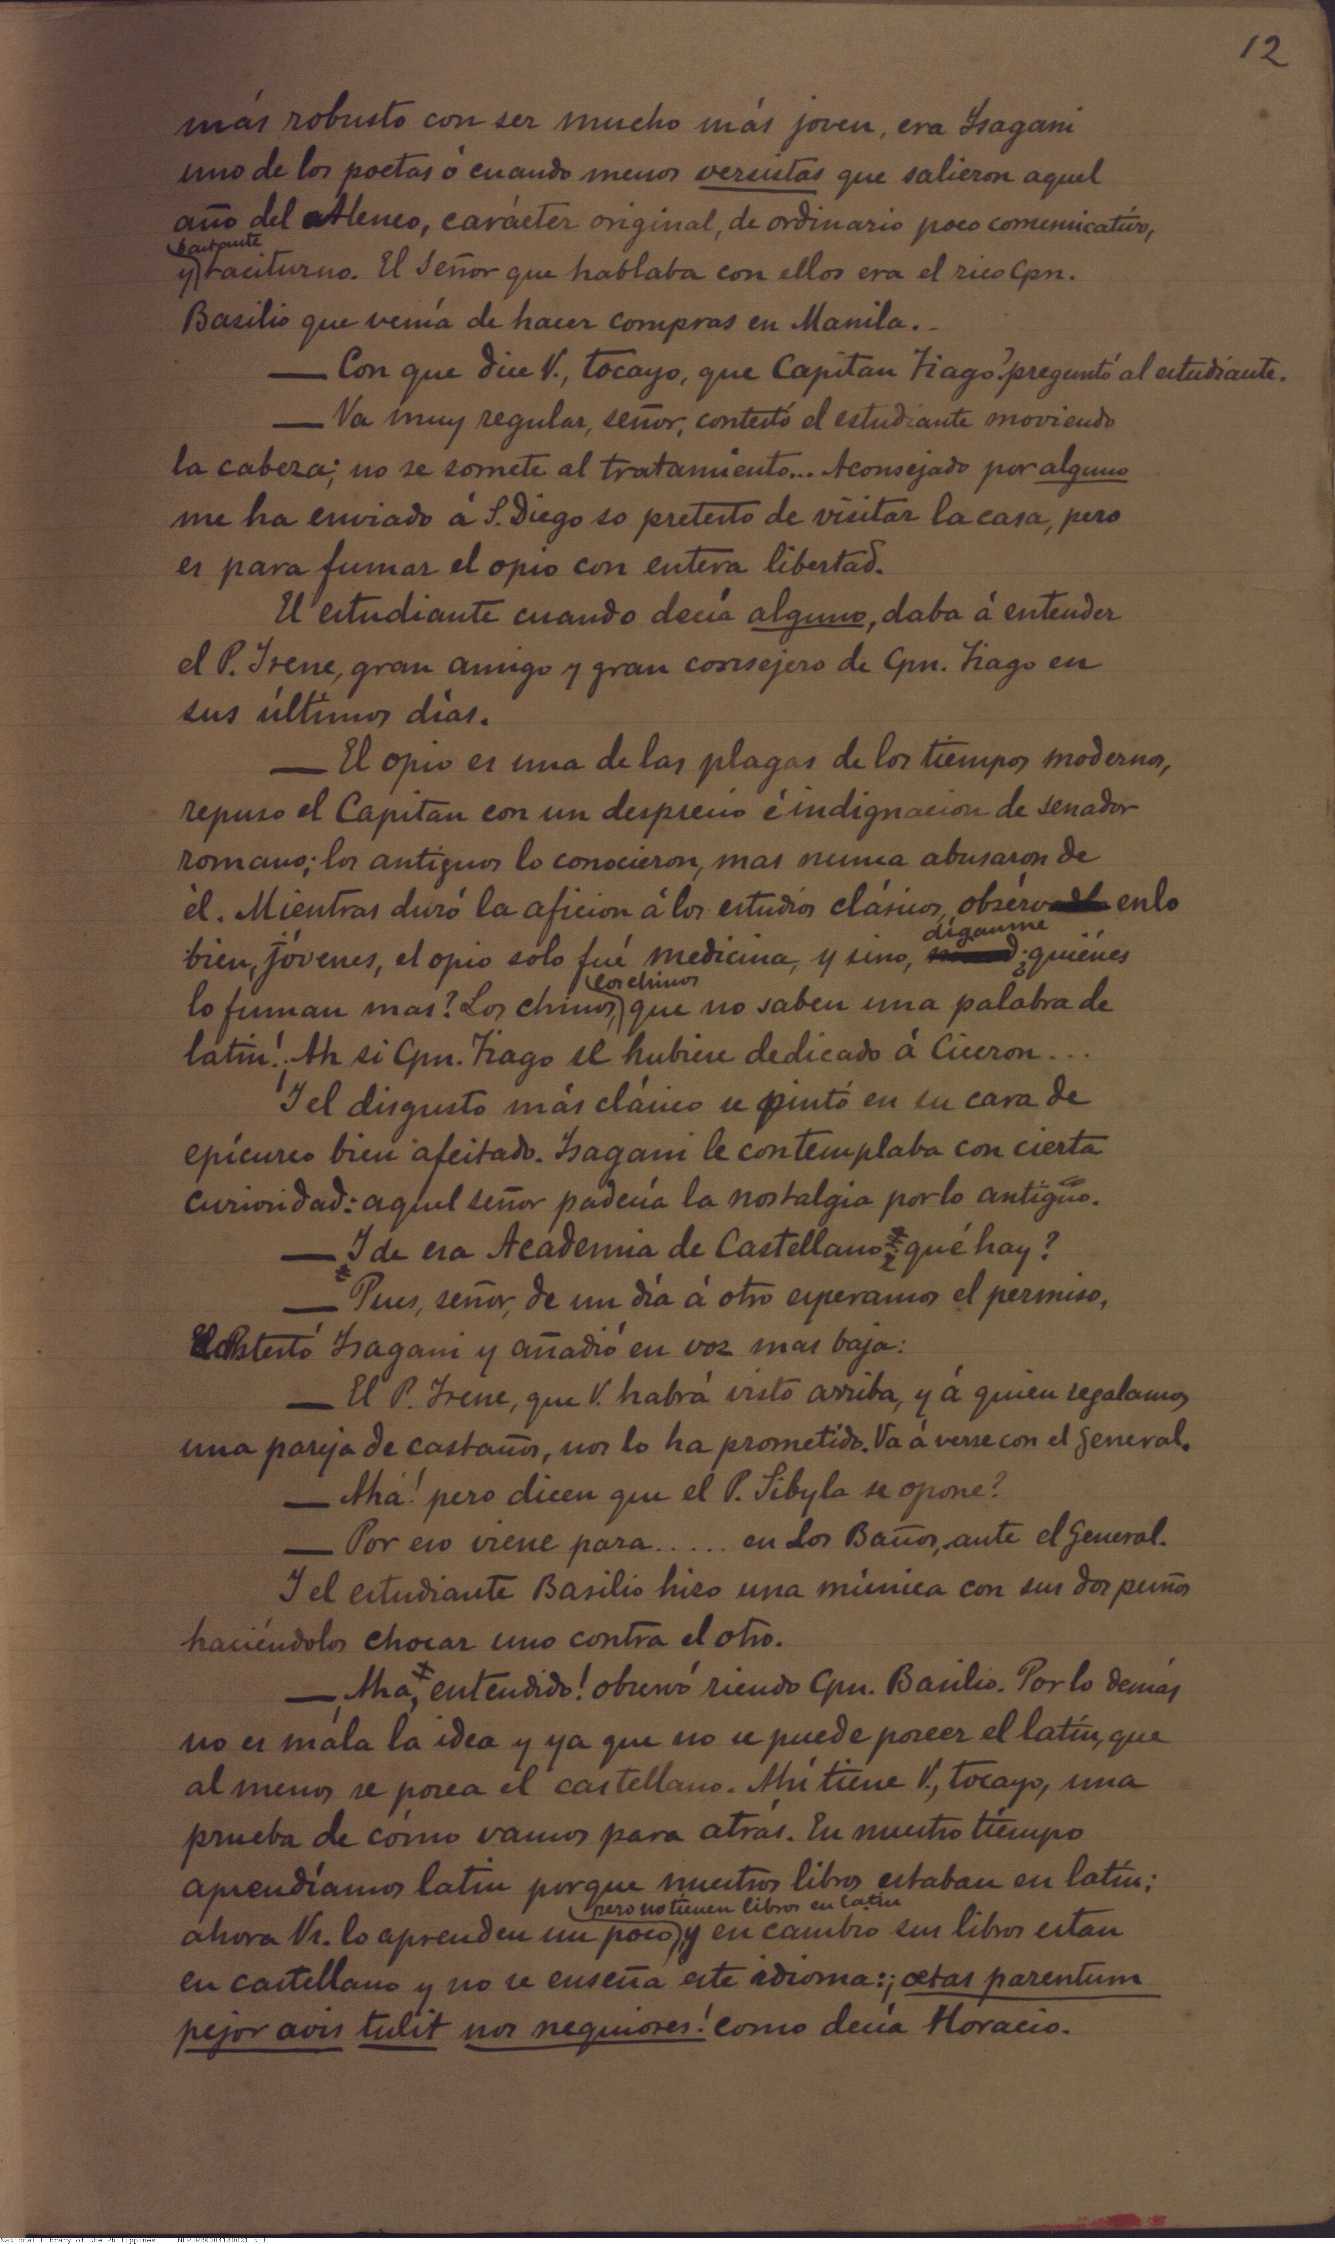 12
más robusto con ser mucho más joven, era Isagani
uno de los poetas ó cuando menos versistas que salieron aquel
año del Ateneo, carácter original, de ordinario poco comunicativo,
bastante
y taciturno. El Señor que hablaba con ellos era el rico Cpn.
Basilio que venía de hacer compras en Manila.
— Con que dice V., tocayo, que Capitan Tiago? preguntó al estudiante.
— Va muy regular, señor, contestó el estudiante moviendo
la cabeza; no se somete al tratamiento... Aconsejado por alguno
me ha enviado á S. Diego so pretesto de visitar la casa, pero
es para fumar el opio con entera libertad.
El estudiante cuando decía alguno, daba á entender
el P. Irene, gran amigo y gran consejero de Cpn. Tiago en
sus últimos días.
— El opio es una de las plagas de los tiempos modernos,
repuso el Capitan con un desprecio é indignacion de senador
romano; los antiguos lo conocieron, mas nunca abusaron de
él. Mientras duró la aficion á los estudios clásicos, obsérvenlo
díganme
bien, jóvenes, el opio sólo fué medicina, y sino, ¿quiénes
los chinos
lo fuman mas? Los chinos, que no saben una palabra de
latin! ¡Ah si Cpn. Tiago se hubiese dedicado á Ciceron...
Y el disgusto más clásico se pintó en su cara de
epícureo bien afeitado. Isagani le contemplaba con cierta
curiosidad: aquel señor padecía la nostalgia por lo antiguo.
— Y de esa Academia de Castellano ¿qué hay?
— Pues, señor, de un día á otro esperamos el permiso,
contestó Isagani y añadió en voz mas baja:
— El P. Irene, que V. habrá visto arriba, y á quien regalamos
una pareja de castaños, nos lo ha prometido. Va á verse con el General.
— Ahá! pero dicen que el P. Sibyla se opone?
— Por eso viene para..... en Los Baños, ante el General.
Y el estudiante Basilio hizo una mímica con sus dos puños
haciéndolos chocar uno contra el otro.
— Ahá, entendido! observó riendo Cpn. Basilio. Por lo demás
no es mala la idea y ya que no se puede poseer el latín, que
al menos se posea el castellano. Ahí tiene V., tocayo, una
prueba de cómo vamos para atrás. En nuestro tiempo
aprendíamos latin porque nuestros libros estaban en latín;
pero no tienen libros en latin
ahora Vs. lo aprenden un poco, y en cambio sus libros estan
en castellano y no se enseña este idioma: ¡ætas parentum
pejor avis tulit nos nequiores! como decía Horacio.